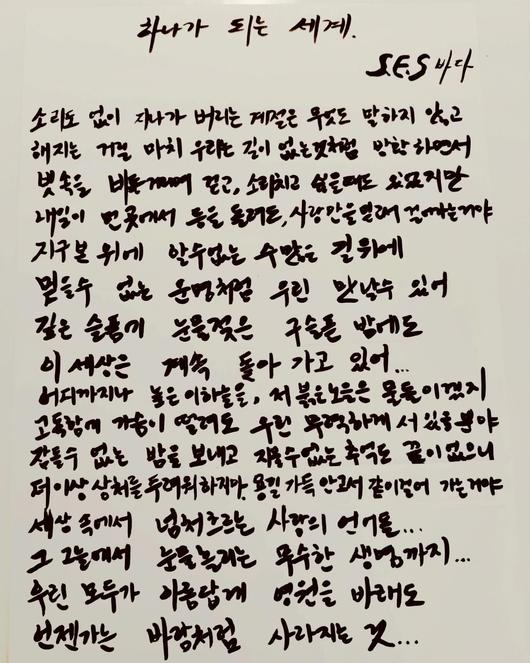 하나가 되는 세계.
S.E.S 바다
소리도 없이 지나가 버리는 계절은 무엇도 말하지 않고
해지는 거리 마치 우리는 길이 없는것처럼 방황하면서
빗속을 비틀거리며 걷고, 소리치고 싶을때도 있었지만
내일이 먼곳에서 등을 돌려도, 사랑만을 믿으며 걸어가는거야
지구본 위에 알수없는 수많은 길위에
믿을수 없는 운명처럼 우린 만날수 있어
깊은 슬픔에 눈물젖은 구슬픈 밤에도
이 세상은 계속 돌아 가고 있어...
어디까지나 높은 이하늘을, 저 붉은노을은 물들이겠지
고독함에 가슴이 떨려도 우린 무력하게 서 있을뿐야
잠들수 없는 밤을 보내고 지울수없는 추억도 끝이없으니
더이상 상처를 두려워하지마, 용길 가득 안고서 같이걸어 가는거야
세상 속에서 넘쳐흐르는 사랑의 언어들...
그 그늘에서 눈물흘리는 무수한 생명까지...
우린 모두가 아름답게 영원을 바래도
언젠가는 바람처럼 사라지는 것...